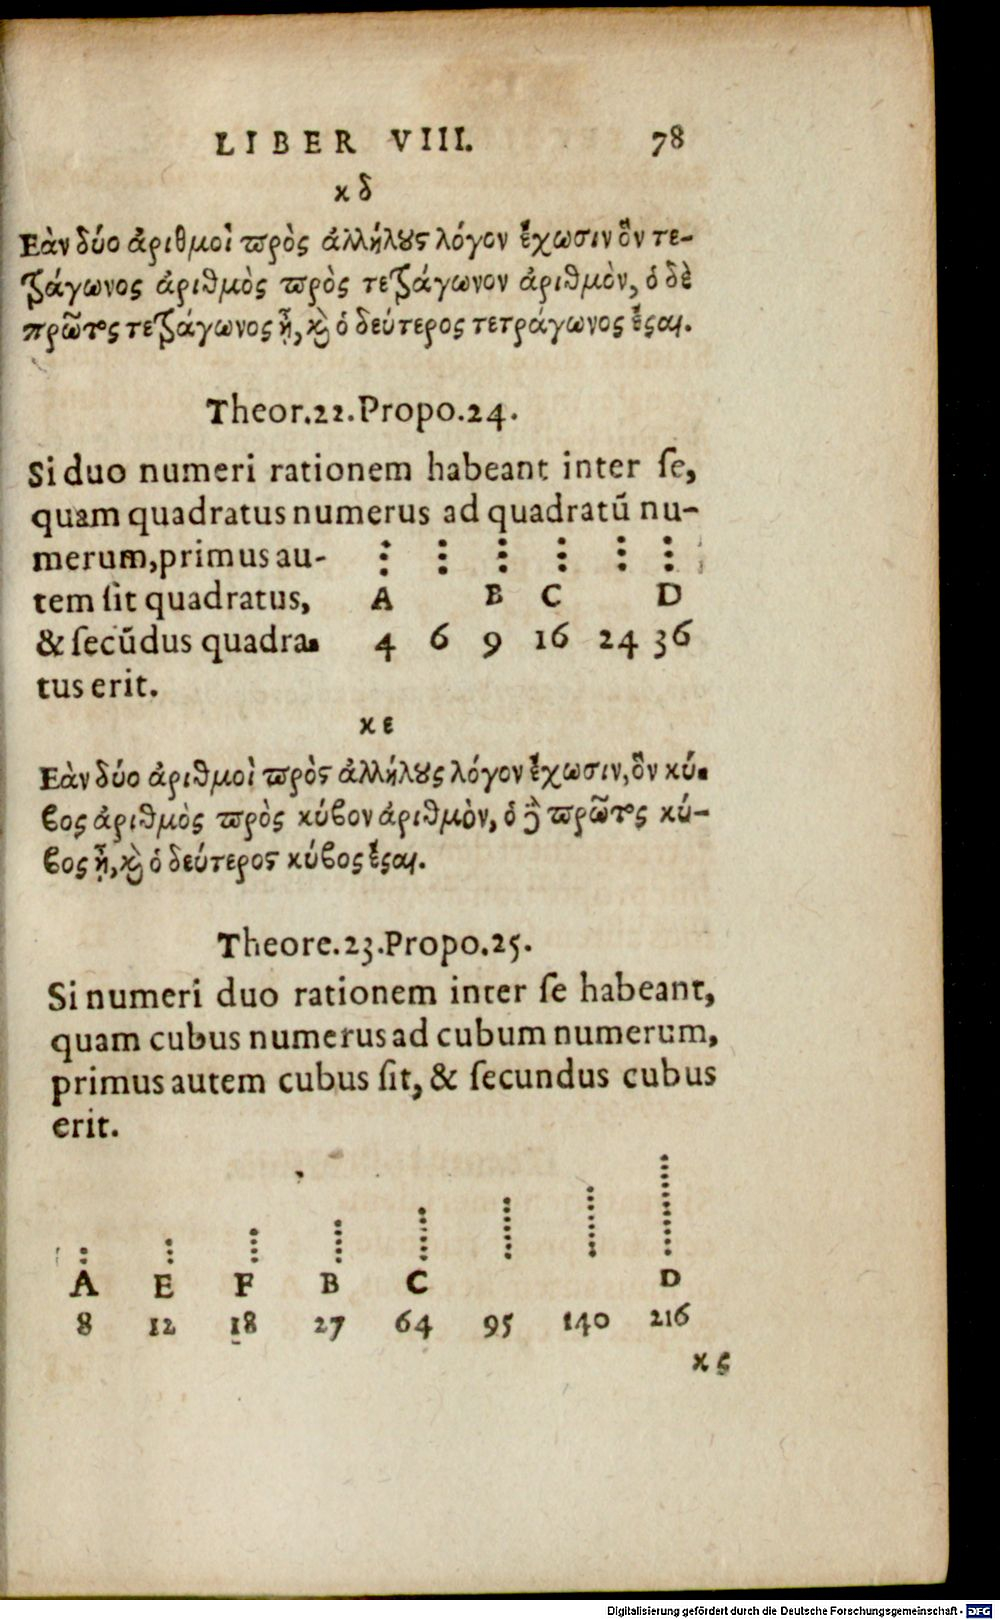 LIBER VIII. 78
κδ
Εὰν δύο ἀριθμοὶ πρὸς ἀλλήλους λόγον ἔχωσιν ὃν τε-
τράγωνος ἀριθμὸς πρὸς τετράγωνον ἀριθμὸν, ὁ δὲ
πρῶτος τετράγωνος ᾖ, καὶ ὁ δεύτερος τετράγωνος ἔσται.
Theor.22.Propo.24.
Si duo numeri rationem habeant inter ſe,
quam quadratus numerus ad quadratũ nu-
merum,primus au-
tem ſit quadratus, A B C D
& ſecũdus quadra- 4 6 9 16 24 36
tus erit.
κε
Εὰν δύο ἀριθμοὶ πρὸς ἀλλήλους λόγον ἔχωσιν, ὃν κύ-
ϐος ἀριθμὸς πρὸς κύϐον ἀριθμὸν, ὁ δὲ πρῶτος κύ-
ϐος ᾖ, καὶ ὁ δεύτερος κύϐος ἔσται.
Theore.23.Propo.25.
Si numeri duo rationem inter ſe habeant,
quam cubus numerus ad cubum numerum,
primus autem cubus ſit, & ſecundus cubus
erit.
A E F B C D
8 12 18 27 64 95 140 216
κς
Digitalisierung gefördert durch die Deutsche Forschungsgemeinschaft - DFG